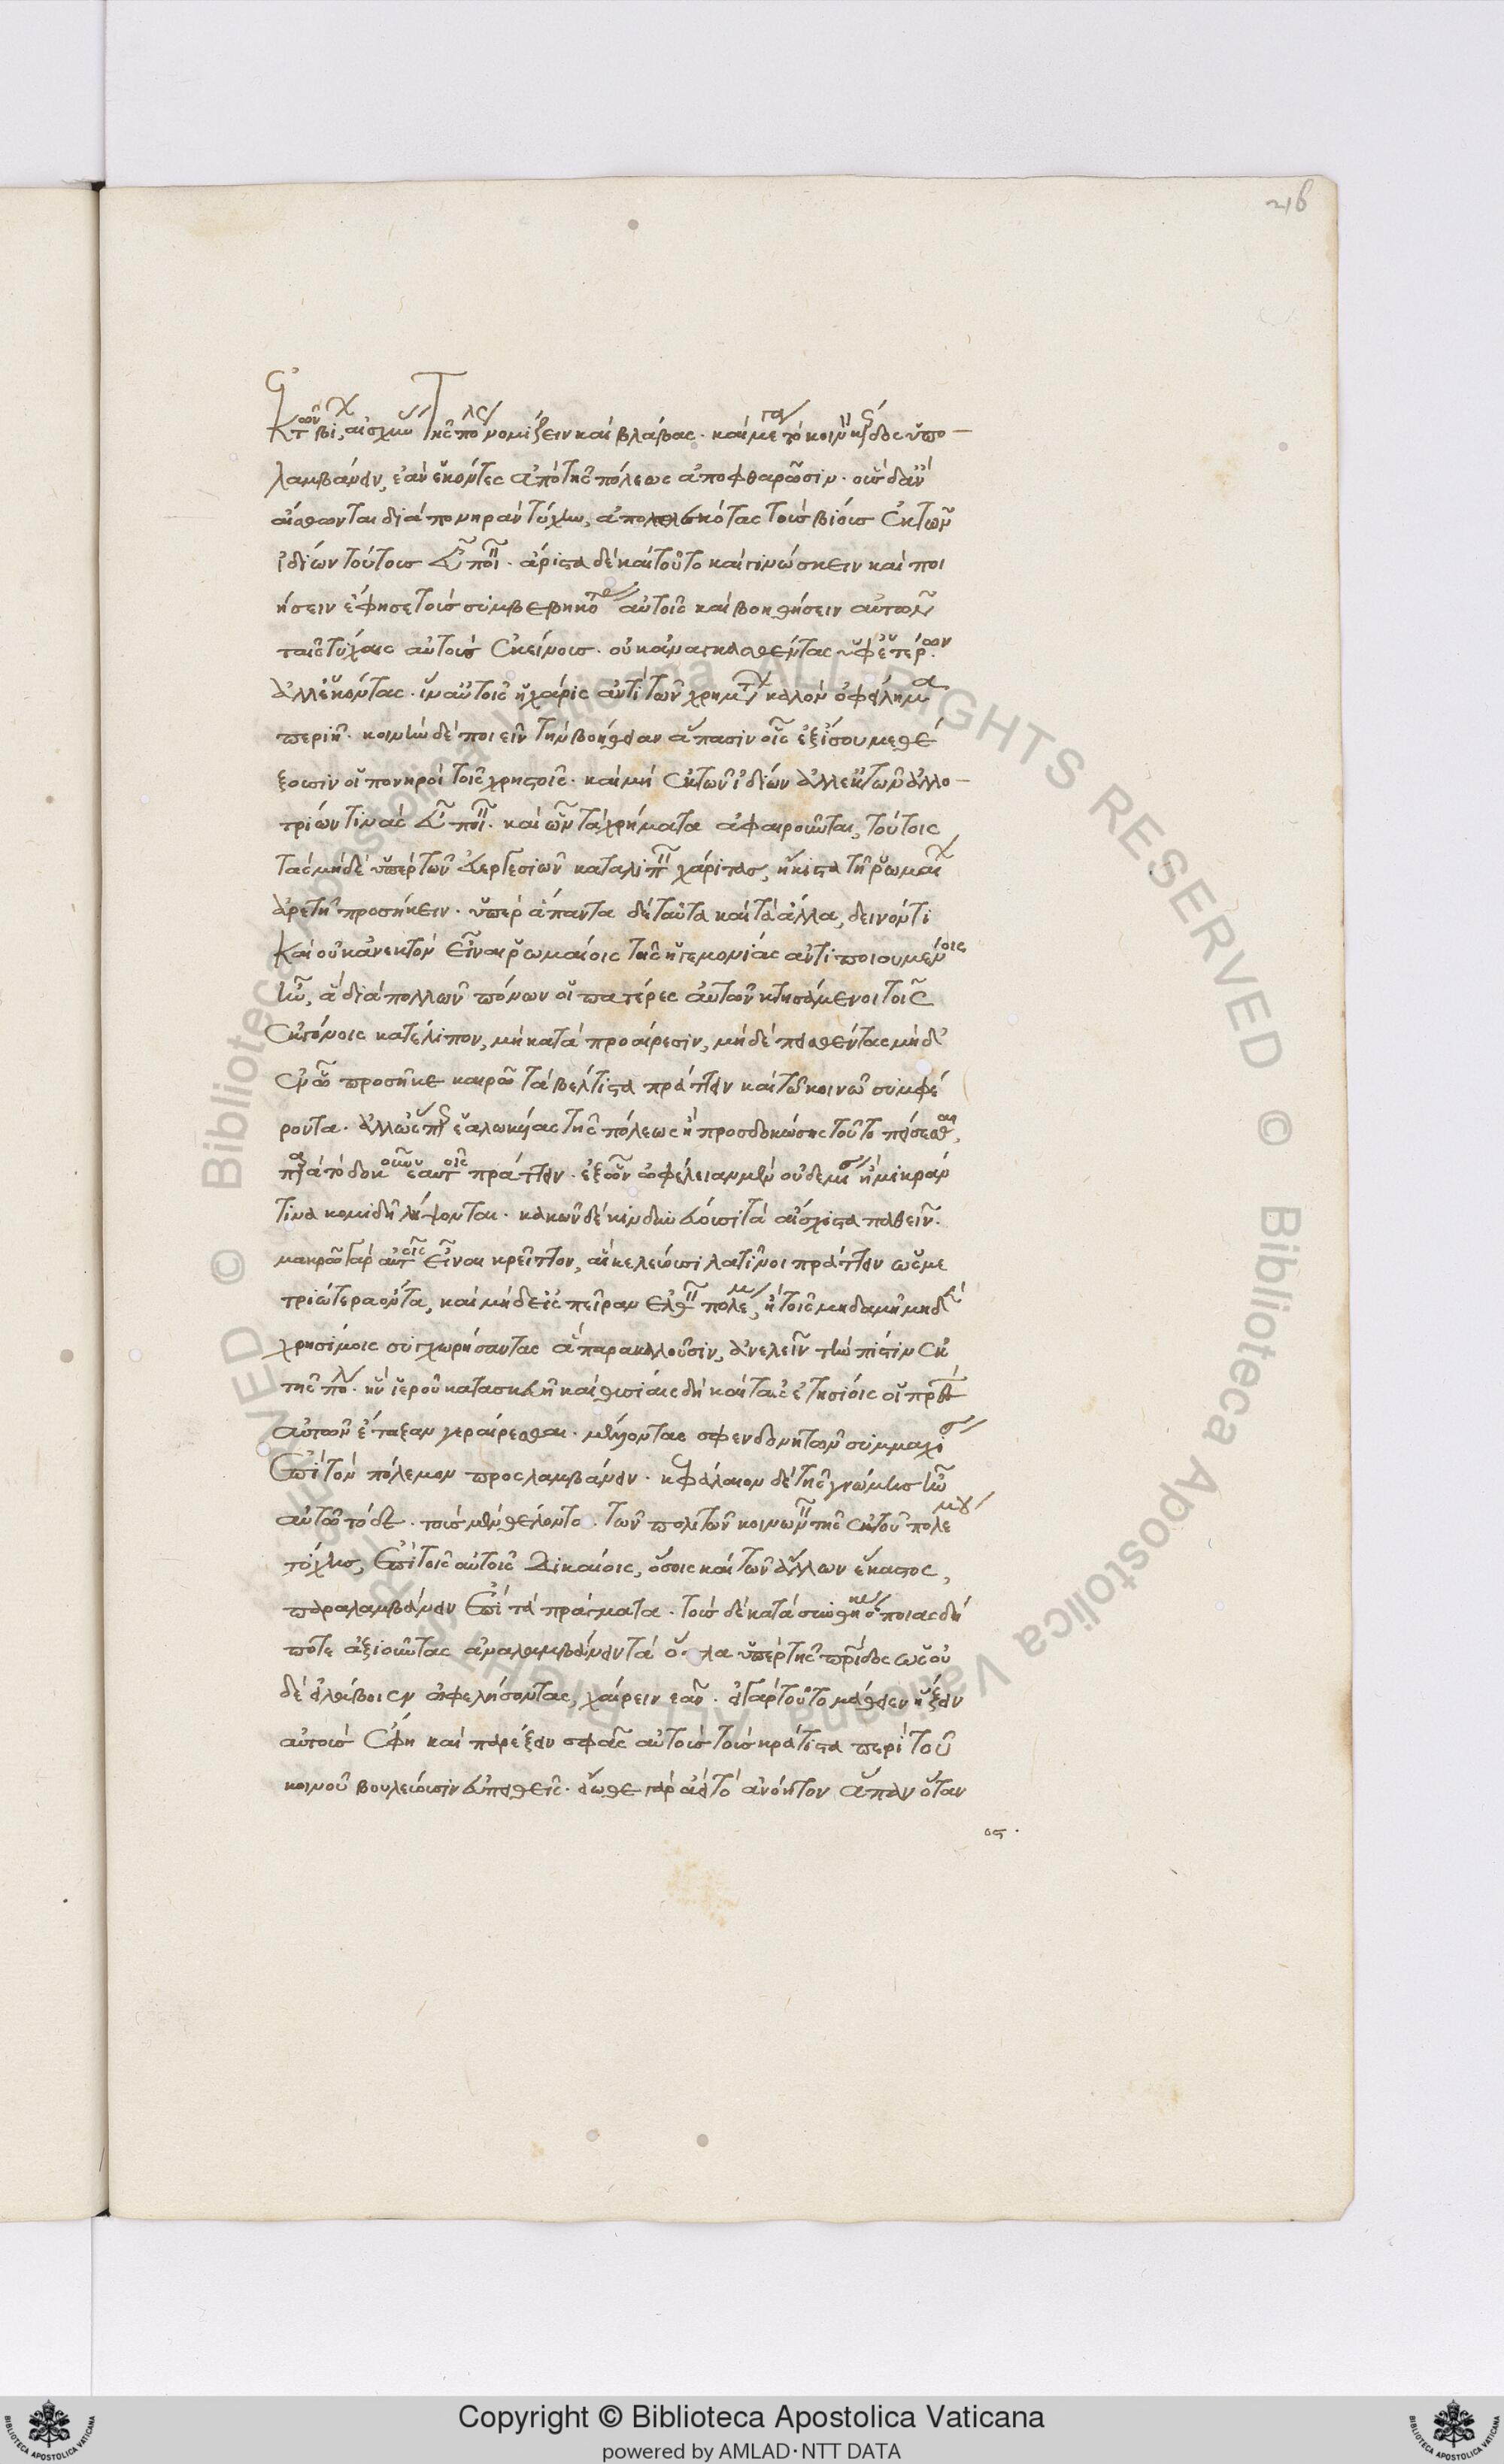 216
κ τῶν βί, αἰσχύν τῆς πόλεως νομίζειν καὶ βλάβας. καὶ μέγα τὸ κοινὸν κῆδος ὑπο-
λαμβάνειν, ἐὰν ἑκόντες ἀπὸ τῆς πόλεως ἀποφθαρῶσιν. οὓς δ' ἂν
αἴσθωνται διὰ πονηρὰν τύχην, ἀπολωλεκότας τοὺς βίους ἐκ τῶν
ἰδίων τούτους εὖ ποιεῖν. ἄριστα δὲ καὶ τοῦτο καὶ γινώσκειν καὶ ποι
ήσειν ἔφησε τοὺς συμβεβηκότας αὐτοῖς καὶ βοηθήσειν αὐτῶν
ταῖς τύχαις αὐτοὺς ἐκείνους. οὐκ ἀναγκασθέντας ὑφ' ἑτέρων
ἀλλ' ἑκόντας. ἵν' αὐτοῖς ἡ χάρις ἀντὶ τῶν χρημάτων καλὸν ὀφείλημα
περιῇ. κοινὴν δὲ ποιεῖν τὴν βοήθειαν ἅπασιν οἷς ἐξ ἴσου μεθέ
ξουσιν οἱ πονηροὶ τοῖς χρηστοῖς. καὶ μὴ ἐκ τῶν ἰδίων ἀλλ' ἐκ τῶν ἀλλο-
τρίων τινὰς εὖ ποιεῖν. καὶ ὧν τὰ χρήματα ἀφαιροῦνται, τούτοις
τὰς μηδὲ ὑπὲρ τῶν εὐεργεσιῶν καταλιπεῖν χάριτας, ἥκιστα τῇ ῥωμαίων
ἀρετῇ προσήκειν. ὑπὲρ ἅπαντα δὲ ταῦτα καὶ τὰ ἄλλα, δεινόν τι
καὶ οὐκ ἀνεκτὸν εἶναι ῥωμαίοις τῆς ἡγεμονίας ἀντιποιουμένοις
ἣν, ἃ διὰ πολλῶν πόνων οἱ πατέρες αὐτῶν κτησάμενοι τοῖς
ἐκγόνοις κατέλιπον, μὴ κατὰ προαίρεσιν, μηδὲ πεισθέντας μηδ'
ἐν ᾧ προσῆκε καιρῷ τὰ βέλτιστα πράττειν καὶ τῷ κοινῷ συμφέ
ροντα. ἀλλ' ὥσπερ ἑαλωκυίας τῆς πόλεως ἢ προσδοκώσης τοῦτο πείσεσθαι,
παρὰ τὸ δοκοῦν ἑαυτοῖς πράττειν. ἐξ ὧν ὠφέλειαν μὲν οὐδεμίαν ἢ μικράν
τινα κομιδῇ λήψονται. κακῶν δὲ κινδυνεύουσι τὰ αἴσχιστα παθεῖν.
μακρῷ γὰρ αὐτοῖς εἶναι κρεῖττον, ἃ κελεύουσι λατῖνοι πράττειν ὡς με
τριώτερα ὄντα, καὶ μηδ' εἰς πεῖραν ἐλθεῖν πολέμου, ἢ τοῖς μηδαμῆ μηδὲ
χρησίμοις συγχωρήσαντας ἃ παρακαλοῦσιν, ἀνελεῖν τὴν πίστιν ἐκ
τῆς πόλεως. ἣν ἱεροῦ κατασκευῇ καὶ θυσίαις δὴ καὶ ταῖς ἐτησίοις οἱ πρεσβύτεροι
αὐτῶν ἔταξαν γεραίρεσθαι. μέλλοντας σφενδονητῶν συμμαχίαν
ἐπὶ τὸν πόλεμον προσλαμβάνειν. κεφάλαιον δὲ τῆς γνώμης ἦν
αὐτῷ τόδε. τοὺς μὲν θέλοντας. τῶν πολιτῶν κοινωνεῖν τῆς ἐκ τοῦ πολέμου
τύχης, ἐπὶ τοῖς αὐτοῖς δικαίοις, ὅσοις καὶ τῶν ἄλλων ἕκαστος,
παραλαμβάνειν ἐπὶ τὰ πράγματα. τοὺς δὲ κατὰ συνθήκας ὁποίας δή
ποτε ἀξιοῦντας ἀναλαμβάνειν τὰ ὅπλα ὑπὲρ τῆς πατρίδος ὡς οὐ
δὲ εἰ λάβοιεν ὠφελήσοντας, χαίρειν ἐᾶν. εἰ γὰρ τοῦτο μάθοιεν ἥξειν
αὐτοὺς ἔφη καὶ παρέξειν σφᾶς αὐτοὺς τοῖς κράτιστα περὶ τοῦ
κοινοῦ βουλεύουσιν εὐπειθεῖς. εἴωθε γὰρ ἀεὶ τὸ ἀνόητον ἅπαν ὅταν
ος.
Copyright © Biblioteca Apostolica Vaticana
powered by AMLAD·NTT DATA